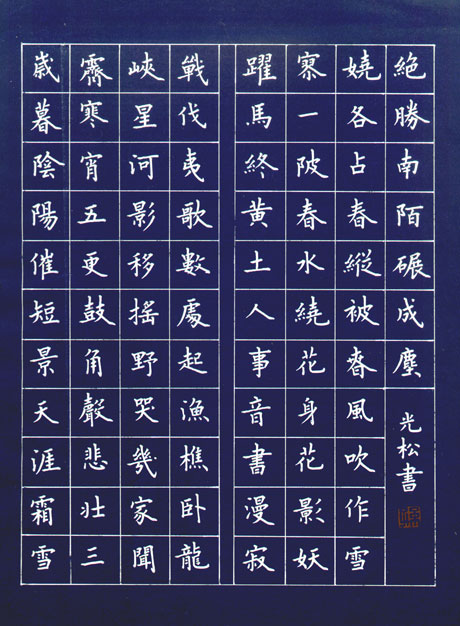 歲暮陰陽催短景天涯霜雪
霽寒宵五更鼓角聲悲壯三
峽星河影移搖野哭幾家聞
戰伐夷歌數處起漁樵臥龍
躍馬終黃土人事音書漫寂
寥一陂春水繞花身花影妖
嬈各占春縱被春風吹作雪
絕勝南陌碾成塵
光松書